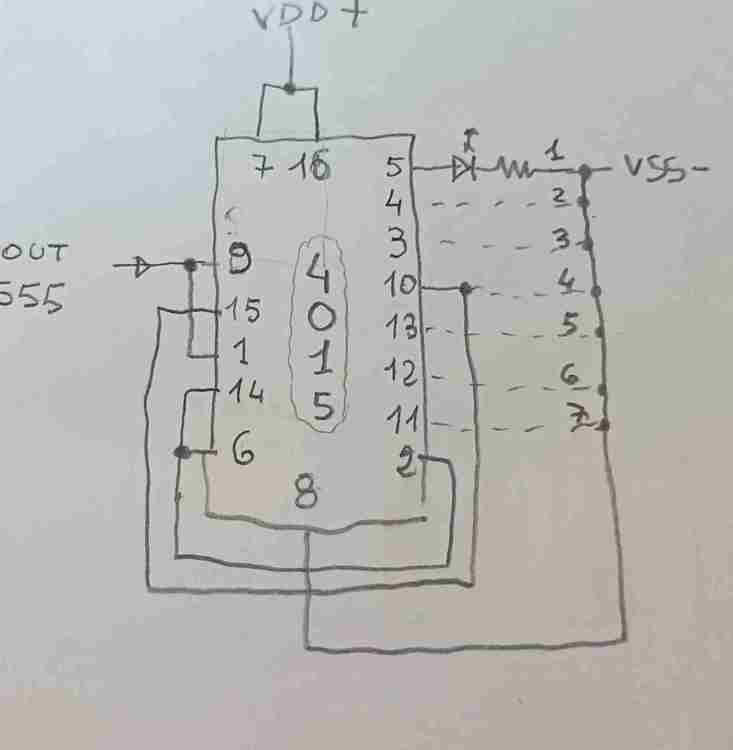 VDD+
7 16 5 1 VSS-
4 2
OUT 9 3 3
555 15 10 4
4015
13 5
1
12 6
14
11 7
6 2
8